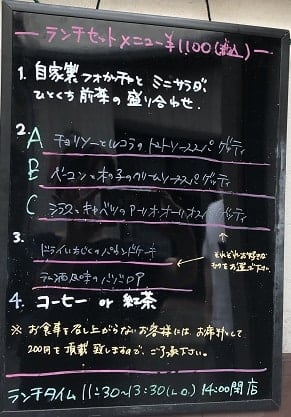 ランチセットメニュー ¥1,100(税込)
1. 自家製フォカッチャとミニサラダ、
ひとくち前菜の盛り合わせ.
2.
A チョリソーとルコラのトマトソーススパゲッティ
B ベーコンと木の子のクリームソーススパゲッティ
C シラスとキャベツのアーリオオーリオスパゲッティ
3.
ドライいちじくのパウンドケーキ
それぞれお好きな
ものをお選び下さい。
4. コーヒー or 紅茶
※ お食事を召し上がらないお客様には、お席料として
200円を頂載致しますので、ご了承下さい。
ランチタイム 11:30〜13:30(L.O.) 14:00閉店